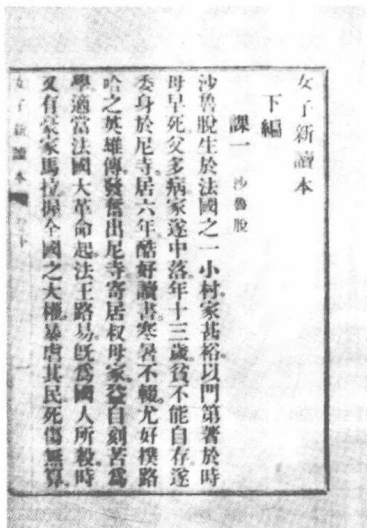 女子新讀本
下編
課一 沙魯脫
沙魯脫生於法國之一小村家甚裕以門第著於時
母早死父多病家遂中落年十三歲貧不能自存遂
委身於尼寺居六年酷好讀書寒暑不輟尤好撲路
哈之英雄傳發奮出尼寺寄居叔母家益自刻苦爲
學適當法國大革命起法王路易既爲國人所殺時
又有豪家馬拉握全國之大權暴虐其民死傷無算
女子新讀本